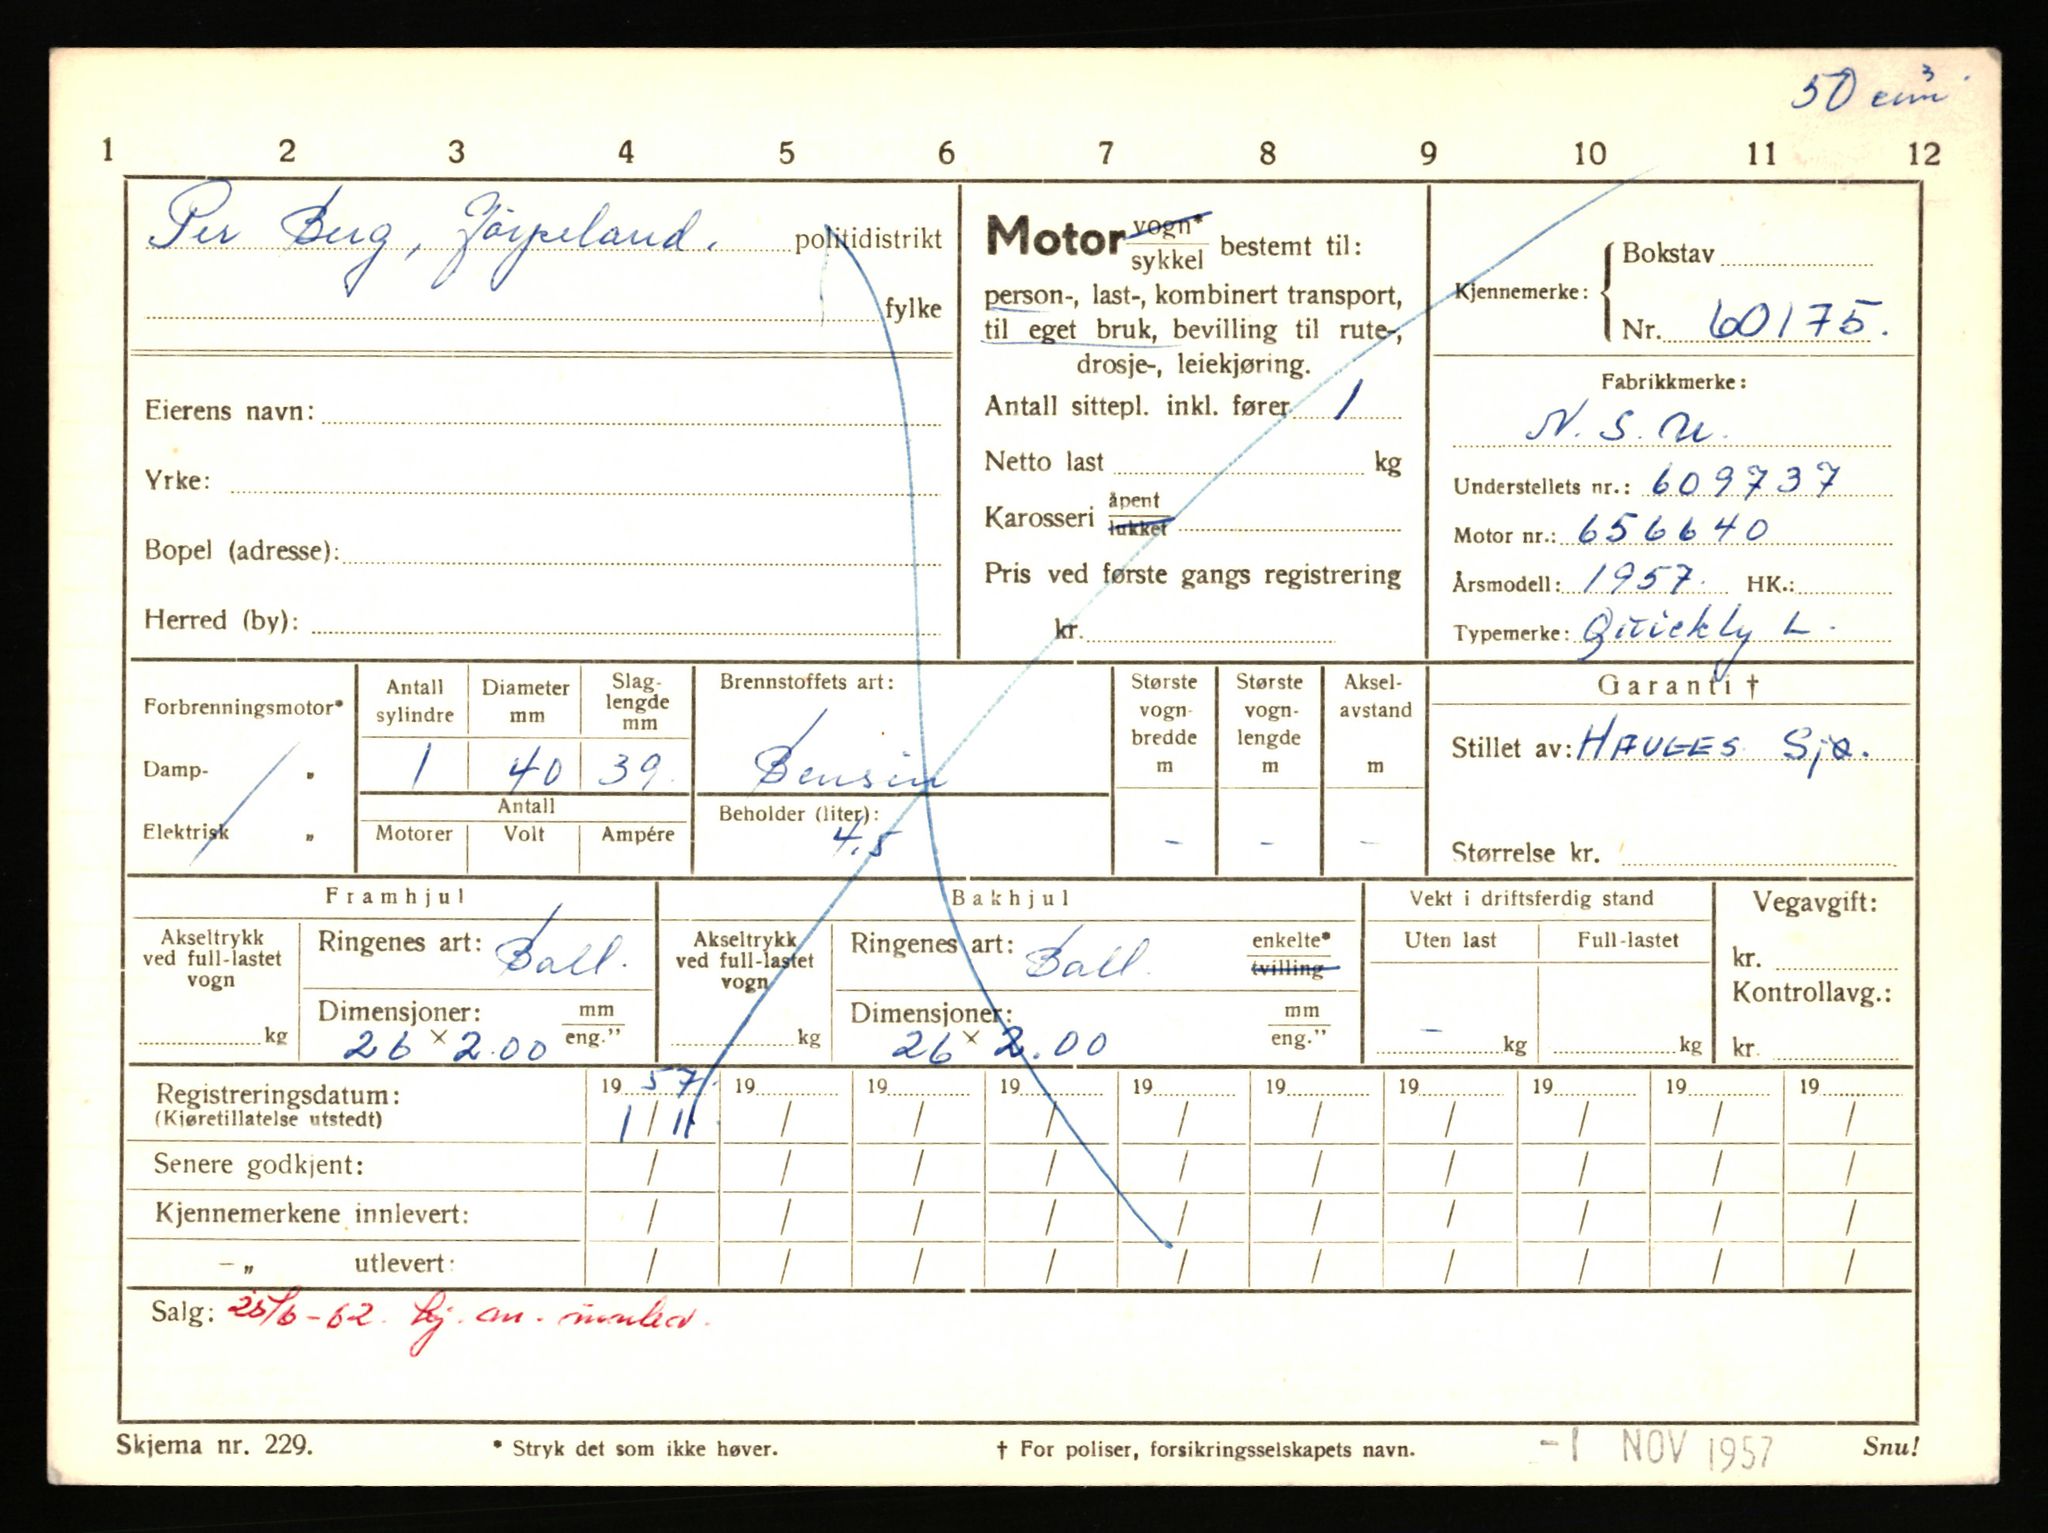 50 cm³
1 2 3 4 5 6 7 8 9 10 11 12
Per Berg, Jörpeland. politidistrikt
fylke
Eierens navn:
Yrke:
Bopel (adresse):
Herred (by):
Motor vogn* sykkel bestemt til:
person-, last-, kombinert transport,
til eget bruk, bevilling til rute-,
drosje-, leiekjøring.
Antall sittepl. inkl. fører 1
Netto last kg
Karosseri åpent lukket
Pris ved første gangs registrering
kr.
Kjennemerke: Bokstav
Nr. 60175.
Fabrikkmerke:
N. S. U.
Understellets nr.: 609737
Motor nr.: 656640
Årsmodell: 1957. HK.:
Typemerke: Quickly L.
Forbrenningsmotor*
Damp- „
Elektrisk „
Antall sylindre
1
Diameter mm
40
Slag-
lengde
mm
39.
Antall
Motorer Volt Ampére
Brennstoffets art:
Bensin
Beholder (liter):
4,5
Største
vogn-
bredde
m
-
Største
vogn-
lengde
m
-
Aksel-
avstand
m
-
Garanti †
Stillet av: HAUGES Sjø.
Størrelse kr.
Framhjul
Akseltrykk
ved full-lastet
vogn
kg
Ringenes art: Ball.
Dimensjoner: mm eng.”
26 × 2.00
Bakhjul
Akseltrykk
ved full-lastet
vogn
kg
Ringenes art: Ball. enkelte* tvilling
Dimensjoner: mm eng.”
26 × 2.00
Vekt i driftsferdig stand
Uten last Full-lastet
- kg kg
Vegavgift:
kr.
Kontrollavg.:
kr.
Registreringsdatum: 19 57. 19 19 19 19 19 19 19 19 19
(Kjøretillatelse utstedt) 1 / 11. / / / / / / / / /
Senere godkjent: / / / / / / / / / /
Kjennemerkene innlevert: / / / / / / / / / /
— „ utlevert: / / / / / / / / / /
Salg: 25/6-62. kj. m. innlev.
Skjema nr. 229. * Stryk det som ikke høver. † For poliser, forsikringsselskapets navn. -1 NOV 1957 Snu!